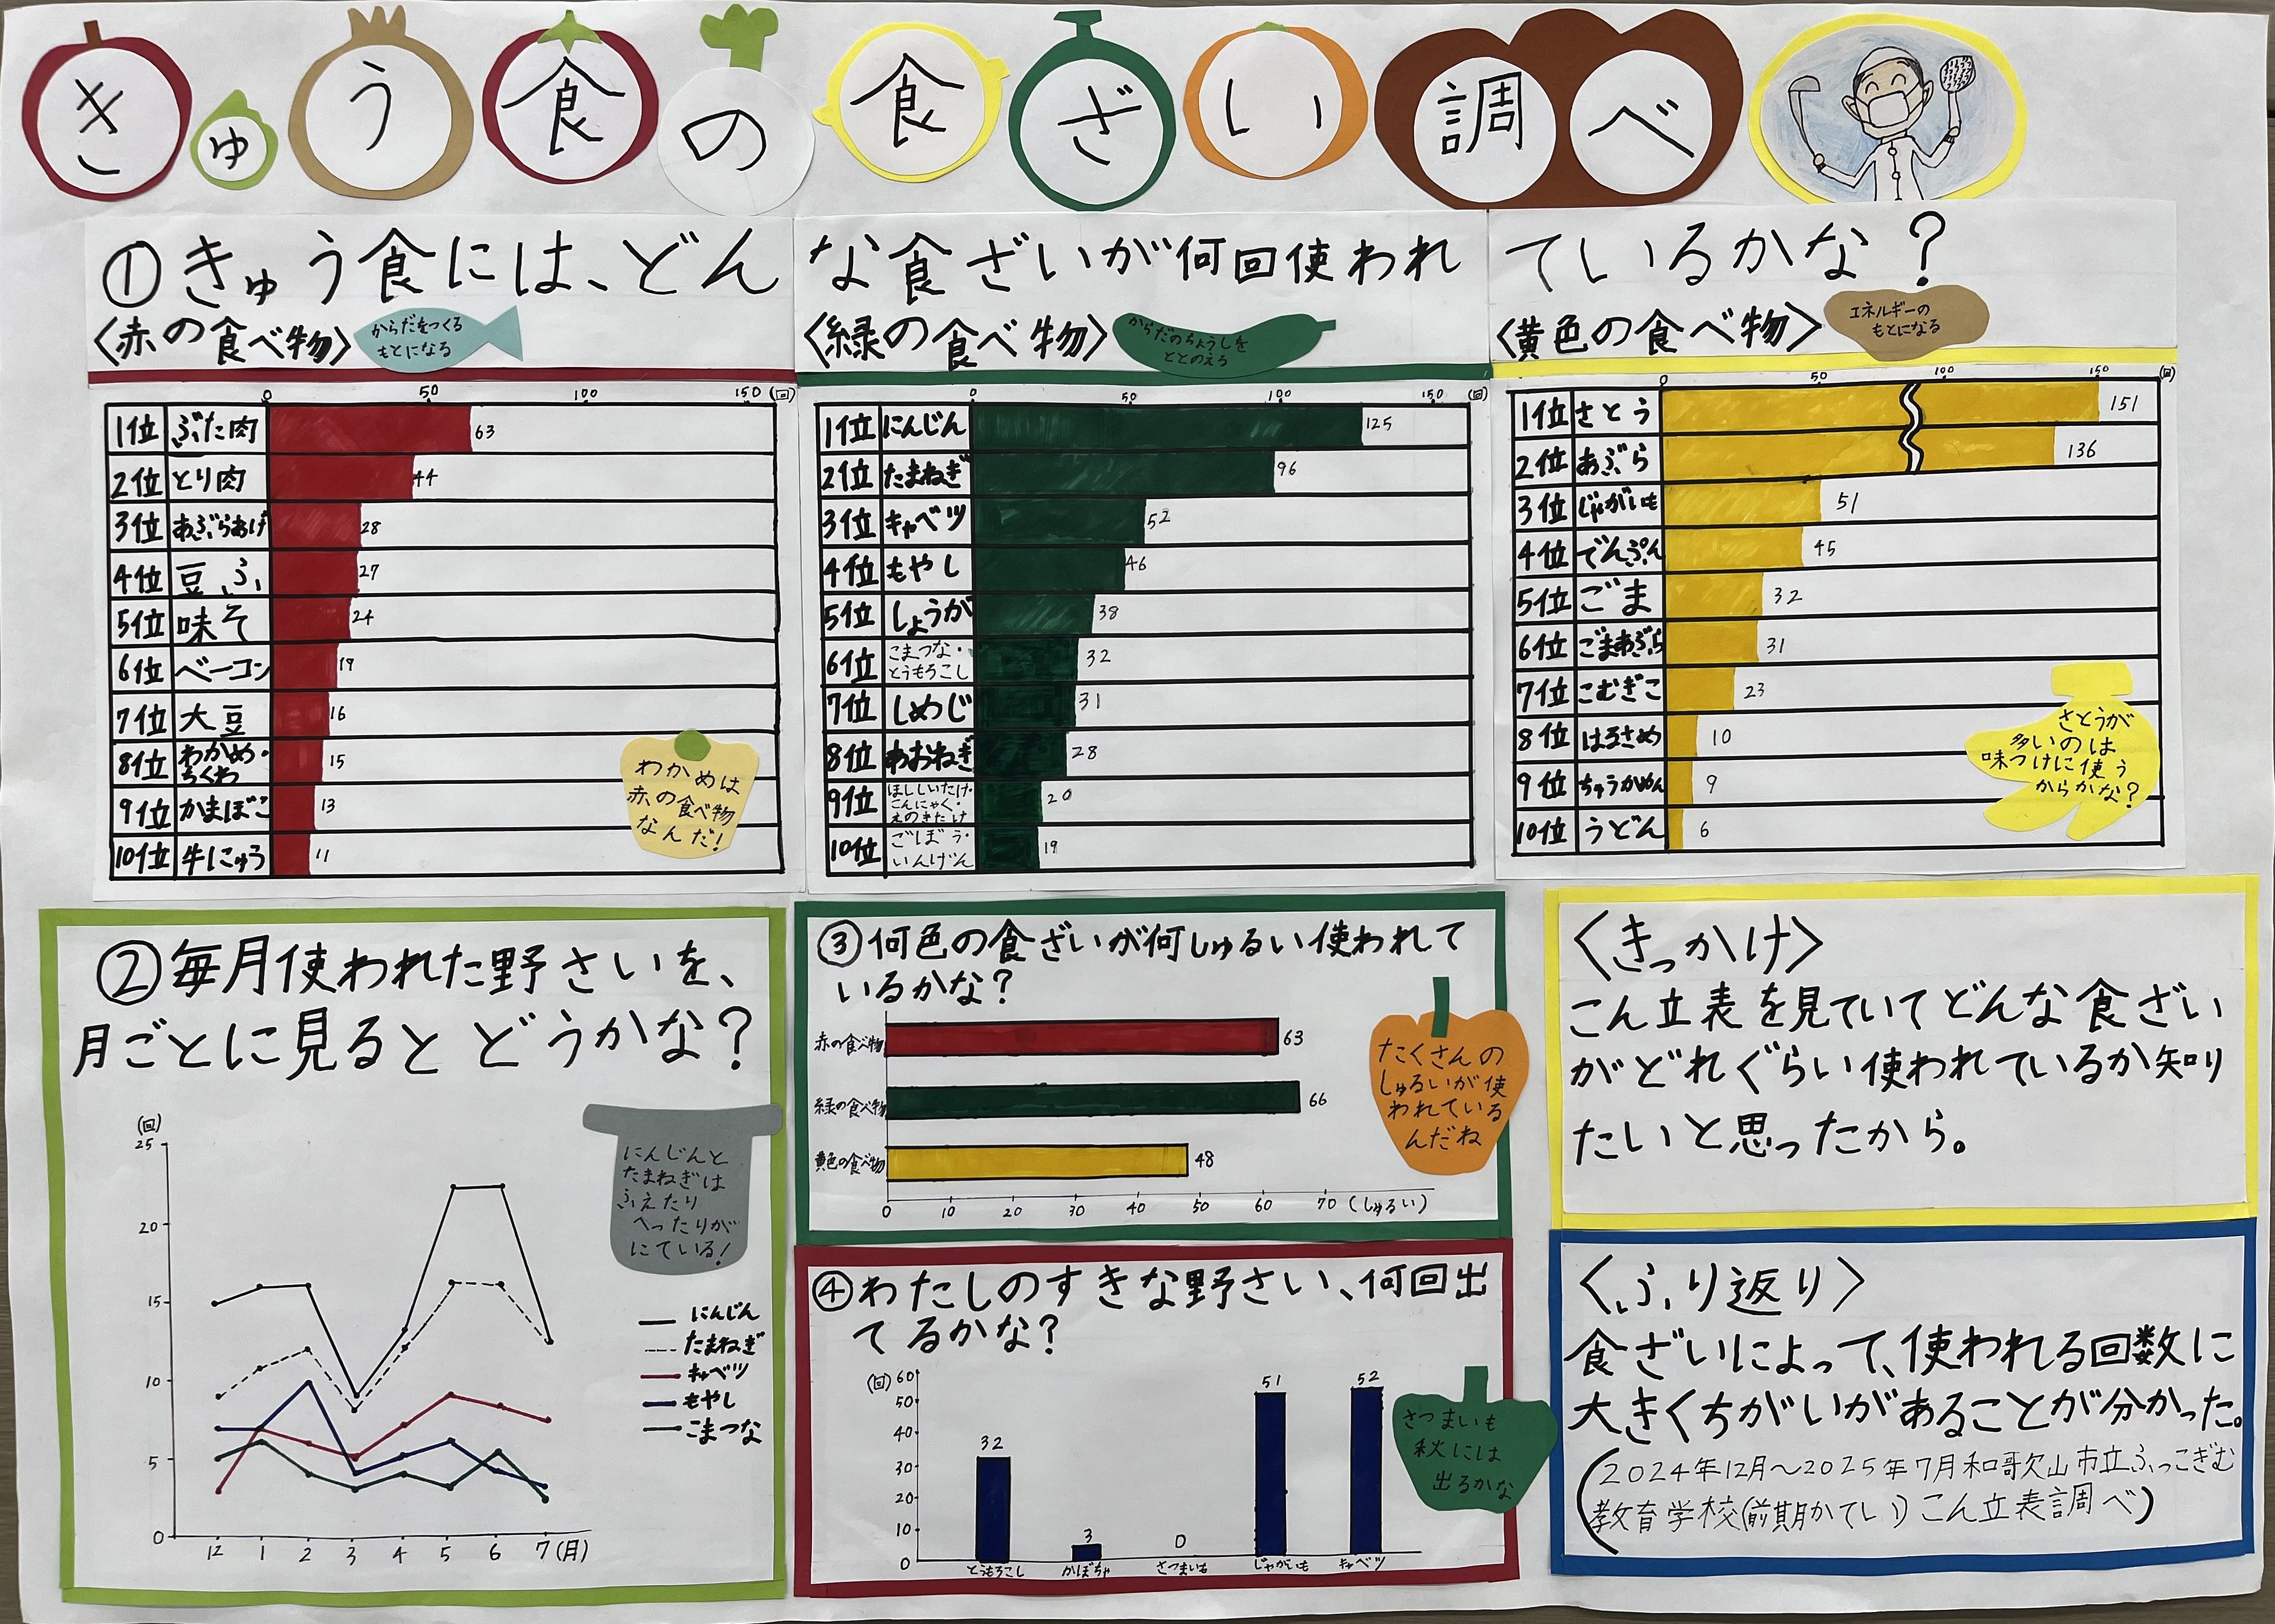 きゅう食の食ざい調べ
①きゅう食には、どんな食ざいが何回使われているかな？
〈赤の食べ物〉
からだをつくる
もとになる
0 50 100 150 (回)
1位 ぶた肉 63
2位 とり肉 44
3位 あぶらあげ 28
4位 豆ふ 27
5位 味そ 24
6位 ベーコン 19
7位 大豆 16
8位 わかめ・
ちくわ 15
9位 かまぼこ 13
10位 牛にゅう 11
わかめは
赤の食べ物
なんだ!
〈緑の食べ物〉
からだのちょうしを
ととのえる
0 50 100 150 (回)
1位 にんじん 125
2位 たまねぎ 96
3位 キャベツ 52
4位 もやし 46
5位 しょうが 38
6位 こまつな・
とうもろこし 32
7位 しめじ 31
8位 あおねぎ 28
9位 ほししいたけ・
こんにゃく・
えのきたけ 20
10位 ごぼう・
いんげん 19
〈黄色の食べ物〉
エネルギーの
もとになる
0 50 100 150 (回)
1位 さとう 151
2位 あぶら 136
3位 じゃがいも 51
4位 でんぷん 45
5位 ごま 32
6位 ごまあぶら 31
7位 こむぎこ 23
8位 はるさめ 10
9位 ちゅうかめん 9
10位 うどん 6
さとうが
多いのは
味つけに使う
からかな?
②毎月使われた野さいを、
月ごとに見るとどうかな？
(回)
25
20
15
10
5
0
12 1 2 3 4 5 6 7(月)
にんじんと
たまねぎは
ふえたり
へったりが
にている!
にんじん
たまねぎ
キャベツ
もやし
こまつな
③何色の食ざいが何しゅるい使われて
いるかな？
赤の食べ物 63
緑の食べ物 66
黄色の食べ物 48
0 10 20 30 40 50 60 70 (しゅるい)
たくさんの
しゅるいが使
われている
んだね
④わたしのすきな野さい、何回出
てるかな？
(回)
60
50
40
30
20
10
0
32 3 0 51 52
とうもろこし かぼちゃ さつまいも じゃがいも キャベツ
さつまいも
秋には
出るかな
〈きっかけ〉
こん立表を見ていてどんな食ざい
がどれぐらい使われているか知り
たいと思ったから。
〈ふり返り〉
食ざいによって、使われる回数に
大きくちがいがあることが分かった。
(2024年12月〜2025年7月和歌山市立ふっこぎむ
教育学校(前期かてい)こん立表調べ)